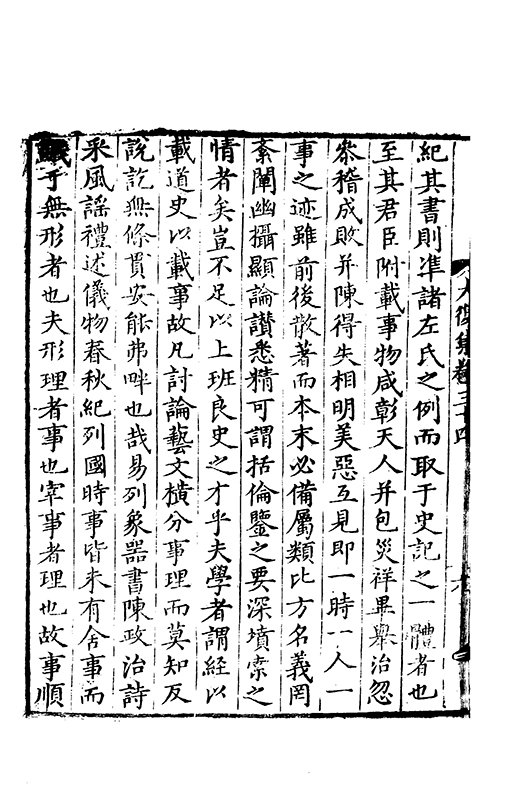 紀其書則準諸左氏之例而取于史記之一體者也
至其君臣附載事物咸彰天人并包災祥畢舉治忽
叅稽成敗并陳得失相明美惡互見即一時一人一
事之迹雖前後散著而本末必備屬類比方名義罔
紊闡幽攝顯論讃悉精可謂括倫鑒之要深墳索之
情者矣豈不足以上班良史之才乎夫學者謂經以
載道史以載事故凡討論藝文橫分事理而莫知反
說訖無條貫安能弗畔也哉易列象器書陳政治詩
采風謠禮述儀物春秋紀列國時事皆未有舍事而
于無形者也夫形理者事也宰事者理也故事順
大復集卷三十四
六